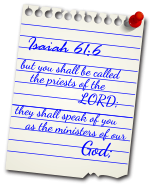 Isaiah 61:6
but you shall be called
the priests of the
LORD;
they shall speak of you
as the ministers of our
God;